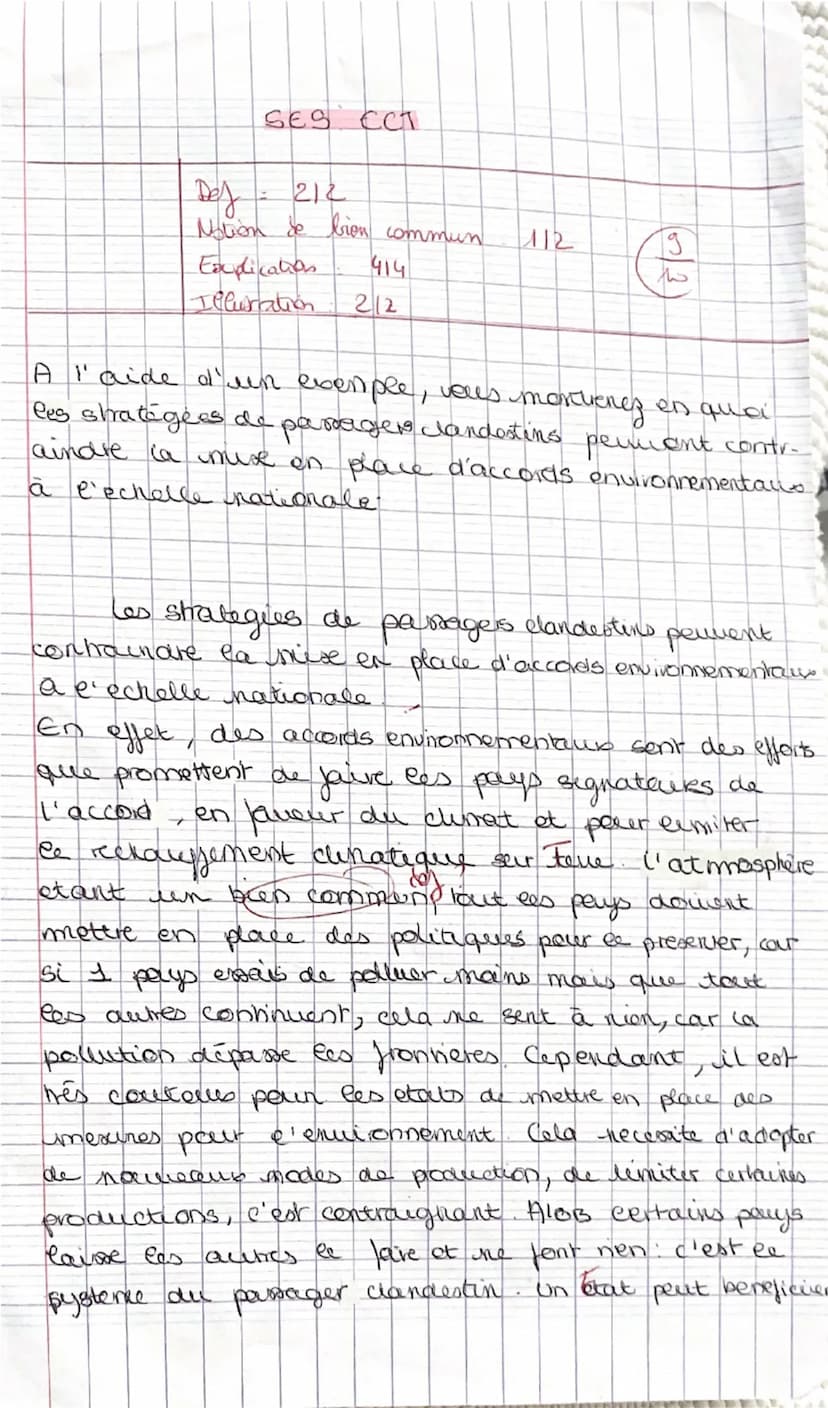 SES CCT
Def = 2/2
Notion de bien commun 1/2
Explication : 4/4
Illuration : 2/2
9/10
A l'aide d'un exemple, vous montrerez en quoi
les stratégies de passagers clandestins peuvent contr-
aindre la mise en place d'accords environnementaux
à l'echelle nationale.
Les strategies de passagers clandestins peuvent
contraindre la mise en place d'accords environnementaux
à l'echelle nationale.
En effet, des accords environnementaux sont des efforts
que promettent de faire les pays signataires de
l'accord, en faveur du climat et pour limiter
le rechauffement climatique sur Terre. L'atmosphère
etant un bien commun, tout les pays doivent
mettre en place des politiques pour le preserver, car
si 1 pays essaie de polluer moins mais que tout
les autres continuent, cela ne sert à rien, car la
pollution dépasse les frontieres. Cependant, il est
très couteux pour les etats de mettre en place des
mesures pour l'environnement. Cela necessite d'adopter
de nouveaux modes de production, de limiter certaines
productions, c'est contraignant. Alors certains pays
laisse les autres le faire et ne font rien : c'est le
systeme du passager clandestin. Un État peut beneficier